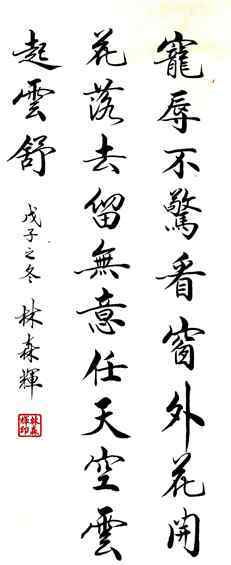 寵辱不驚看窗外花開
花落去留無意任天空雲
起雲舒
戊子之冬 林森輝
林森
輝印